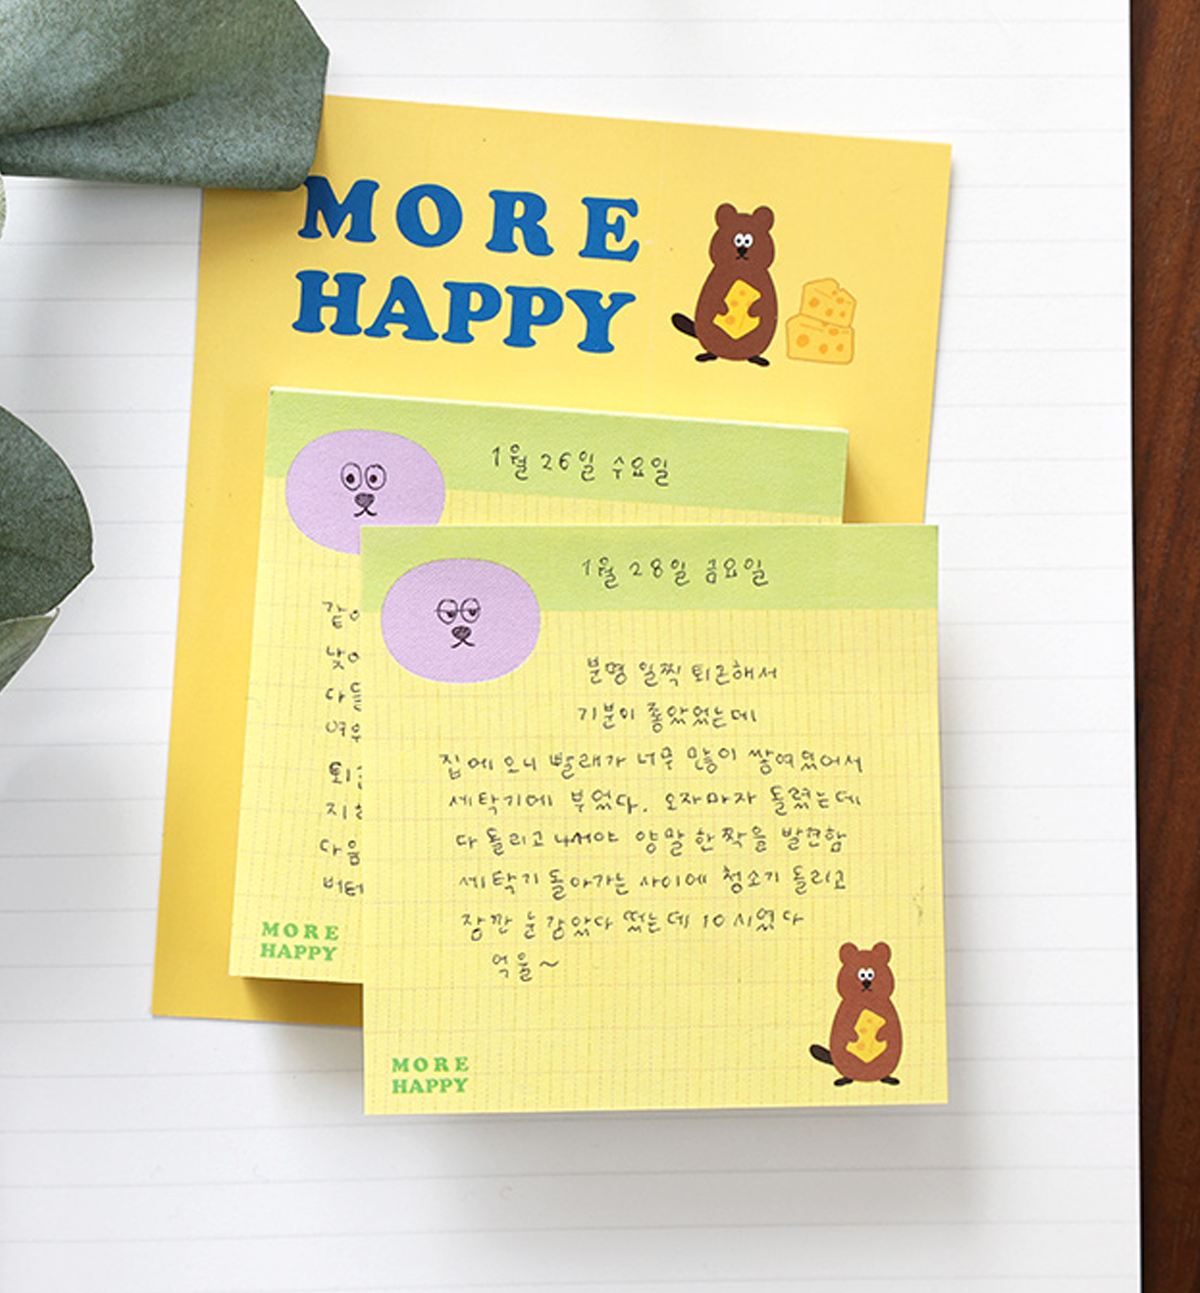 MORE
HAPPY
1월 26일 수요일
다음
MORE
HAPPY
1월 28일 금요일
분명 일찍 퇴근해서
기분이 좋았었는데
집에 오니 빨래가 너무 많이 쌓여있어서
세탁기에 부었다. 오자마자 돌렸는데
다 돌리고 나서야 양말 한짝을 발견함
세탁기 돌아가는 사이에 청소기 돌리고
잠깐 눈감았다 떴는데 10시였다
억울~
MORE
HAPPY